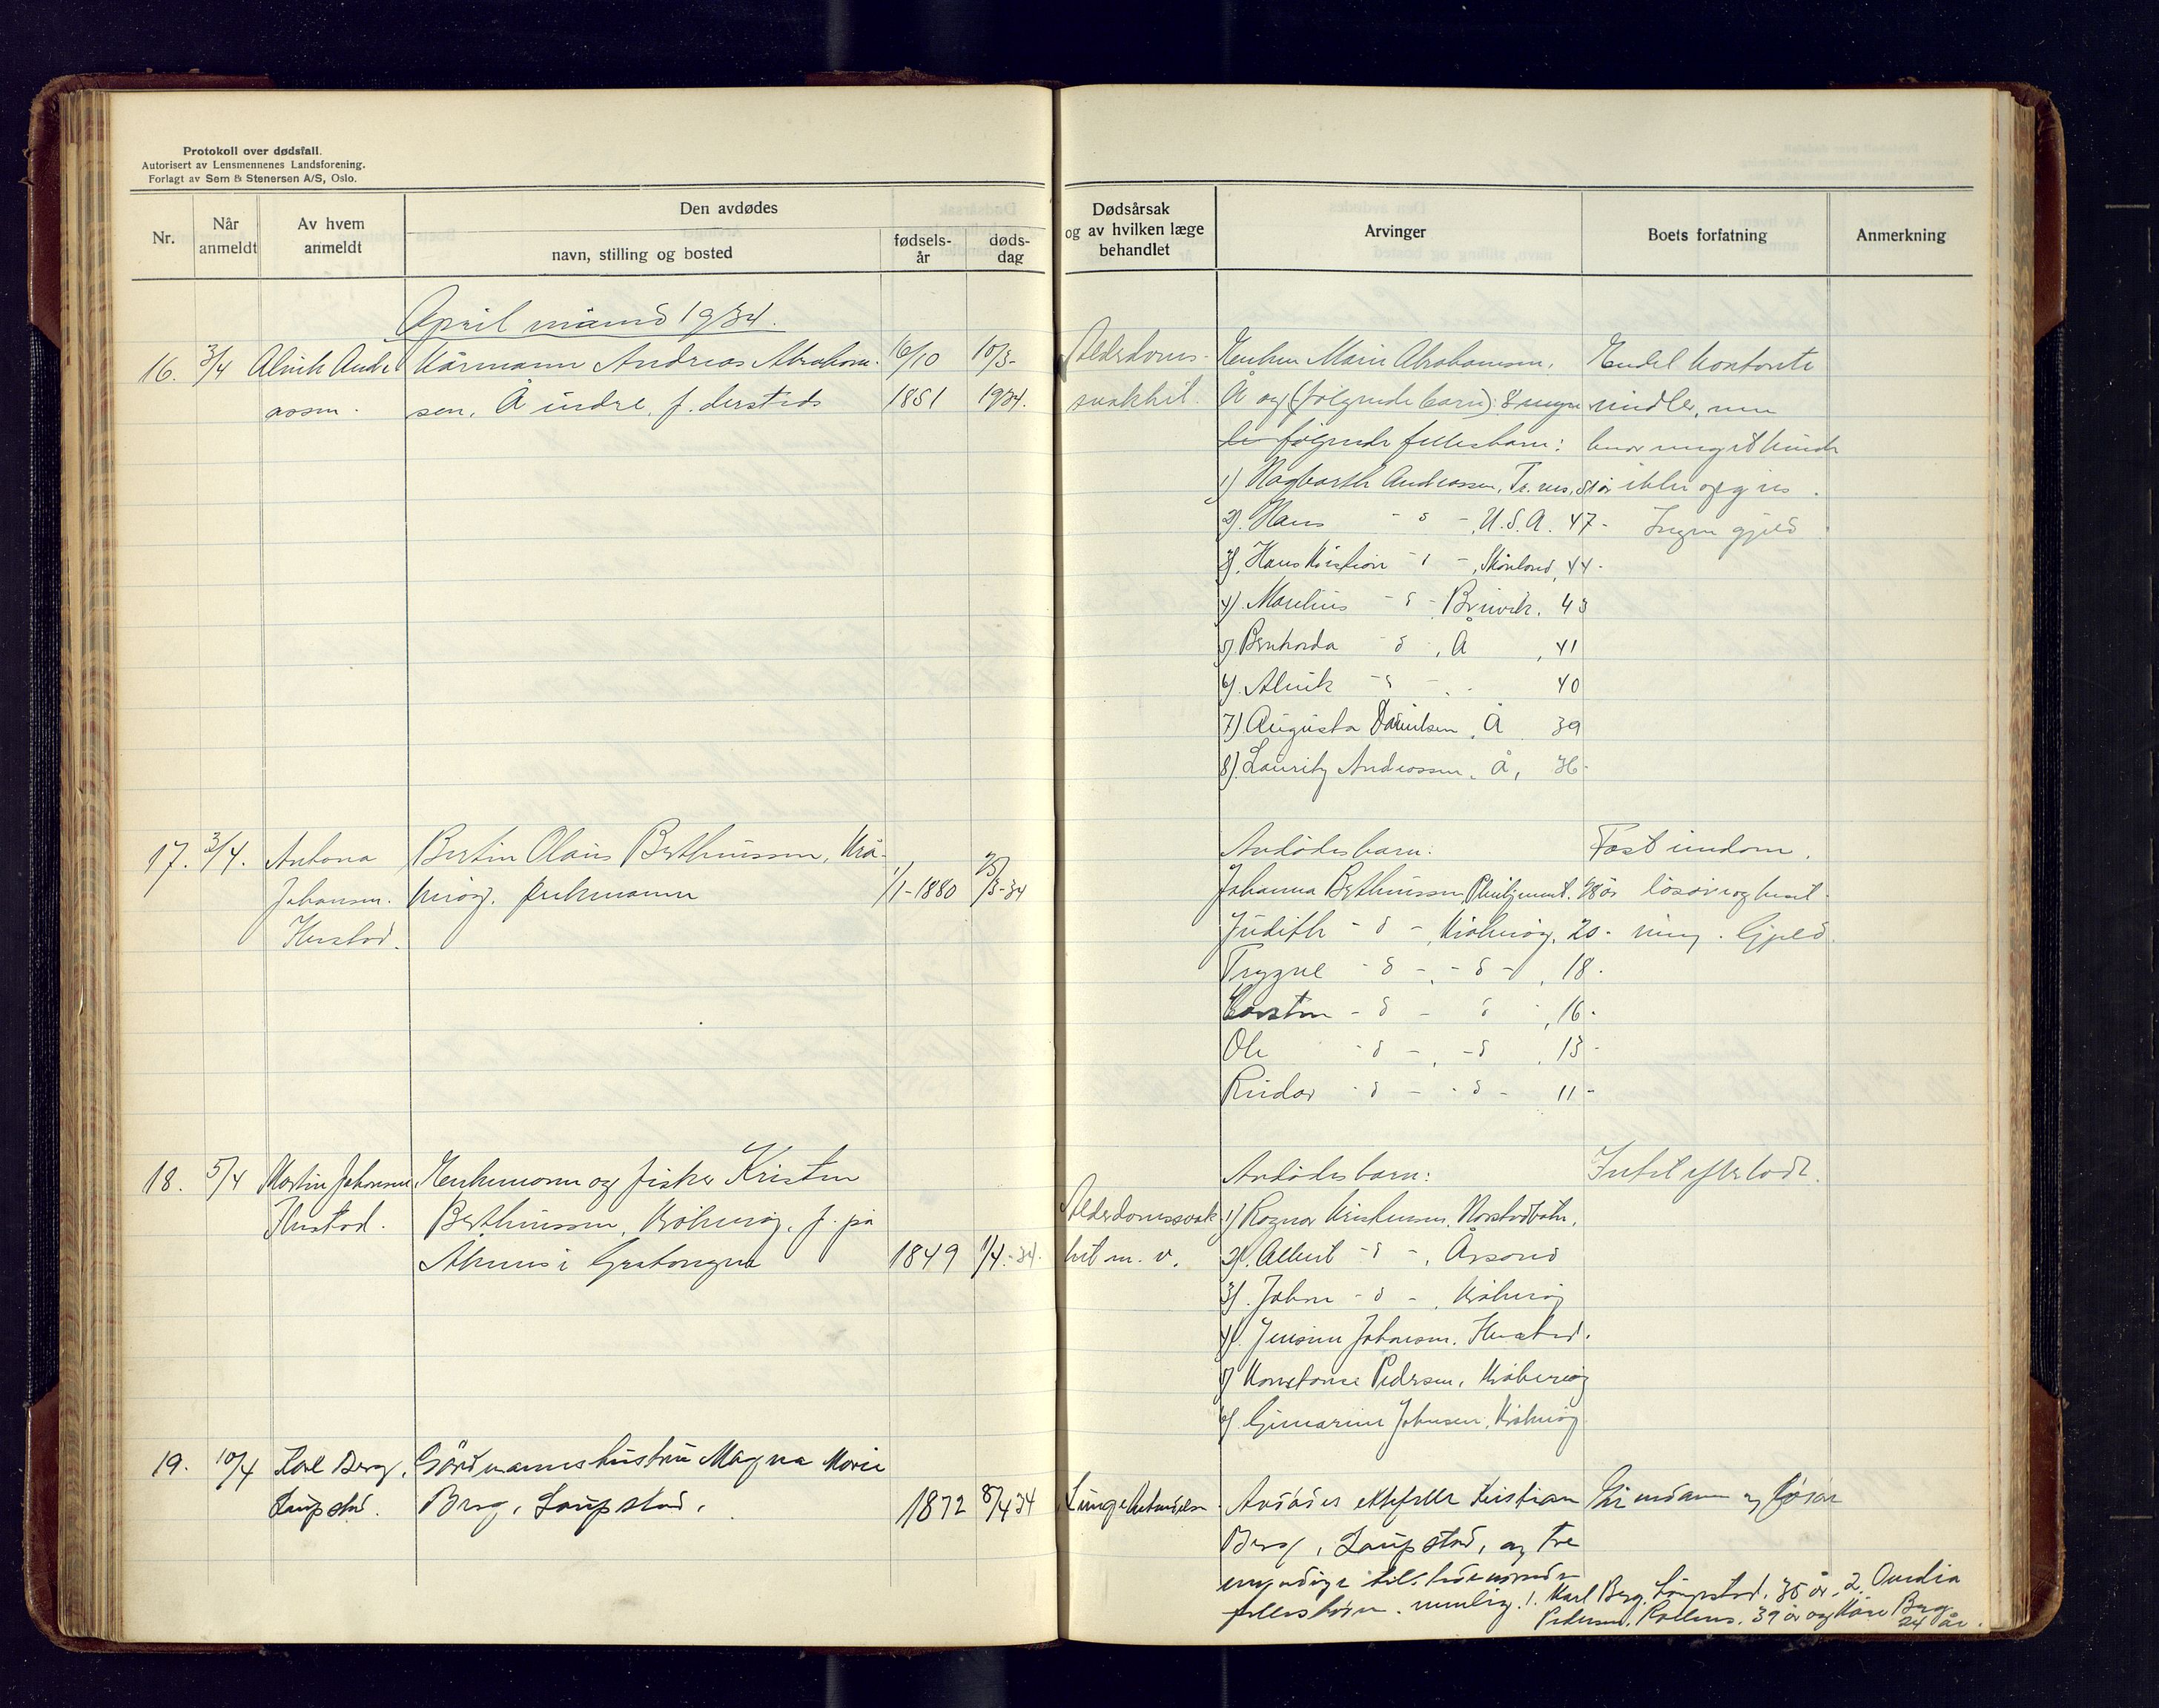 Protokoll over dødsfall.
Autorisert av Lensmennenes Landsforening.
Forlagt av Sem & Stenersen A/S, Oslo.
Nr.
Når anmeldt
Av hvem anmeldt
Den avdødes
navn, stilling og bosted
fødsels-år
døds-dag
Dødsårsak og av hvilken læge behandlet
Arvinger
Boets forfatning
Anmerkning
April måned 1934.
16. 3/4 Alvik Andre
assen.
Kårmann Andreas Abraham-
sen, Å indre, f. dersteds
16/10 1851
10/3- 1934.
Alderdoms-
svakhet.
Enken Marie Abrahamsen,
Å og (følgende barn): 8 myn
følgende fellesbarn:
1) Hagbarth Andreassen, Tr.nes, 51 år
2). Hans - d - , U.S.A. 47-
3). Hans Kristian - d - , Skånland, 44-
4). Marelius - d - Breivik. 43
5) Bernharda - d - , Å , 41
6). Alvik - d - 40
7) Augusta Danielsen, Å 39
8). Lauritz Andreassen, Å, 36-
Endel kontante
midler, men
hvor meget kunde
ikke opgies.
Ingen gjeld
17. 3/4. Antona
Johansen.
Hustad.
Bertin Olaus Berthinussen, Krå-
kerøy. enkemann
1/1-1880
25/3-34
Avdødes barn:
Johanna Berthinussen, 28 år
Judith - d - , Kråkerøy, 20-
Trygve - d - , - d - , 18-
Carsten - d - d , 16-
Ole - d - , - d , 13-
Reidar - d - - d - 11-
Fast eiendom,
løsøre og beset-
ning. Gjeld.
18. 5/4 Martin Johansen,
Hustad.
Enkemann og fisker Kristen
Berthinussen, Kråkerøy, f. på
i Gratangen
1849 1/4.-34.
Alderdomssvak-
het m. v.
Avdødes barn:
1) Ragnar Kristensen,
2). Albert - d - , Årsand
3). Johan - d - , Kråkerøy
4). Jensine Johansen. Hustad.
5) Konstanse Pedersen, Kråkerøy
6) Johnsen, Kråkerøy
Intet efterlatt.
19. 10/4 Karl Berg,
Laupstad.
Gårdmannshustru Magna Marie
Berg, Laupstad.
1872 8/4 34
Lungebetendelse.
Avdødes ektefelle Kristian
Berg, Laupstad, og tre
myndige tilstedeværende
fellesbarn. nemlig: 1. Karl Berg, Laupstad, 35 år, 2. Ovedia
Pedersen, 39 år og Kåre Berg
24 år.
Eiendom og løsøre